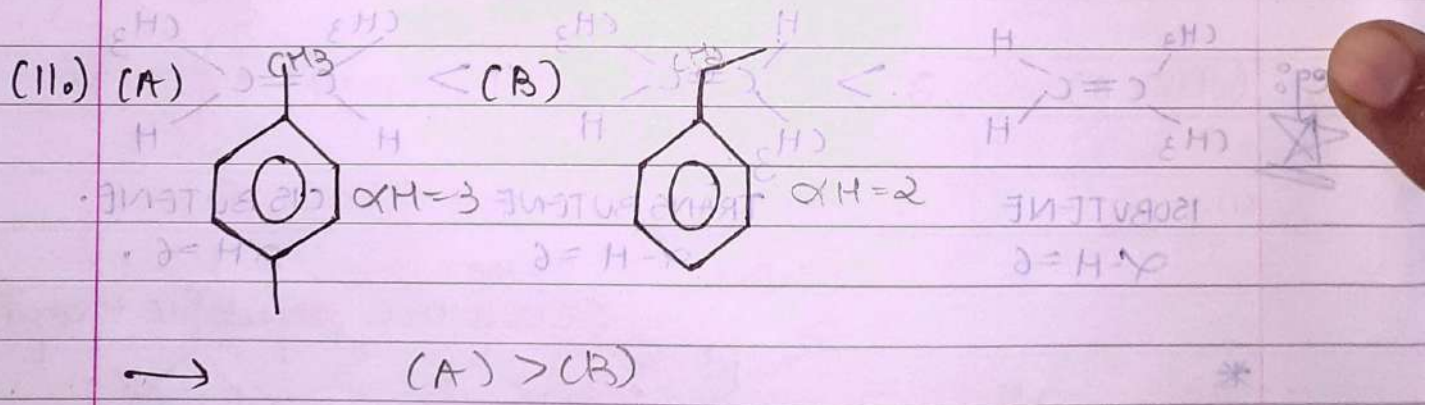 (11.) (A) CH3 (B) CH2
αH=3 αH=2
→ (A) > (B)